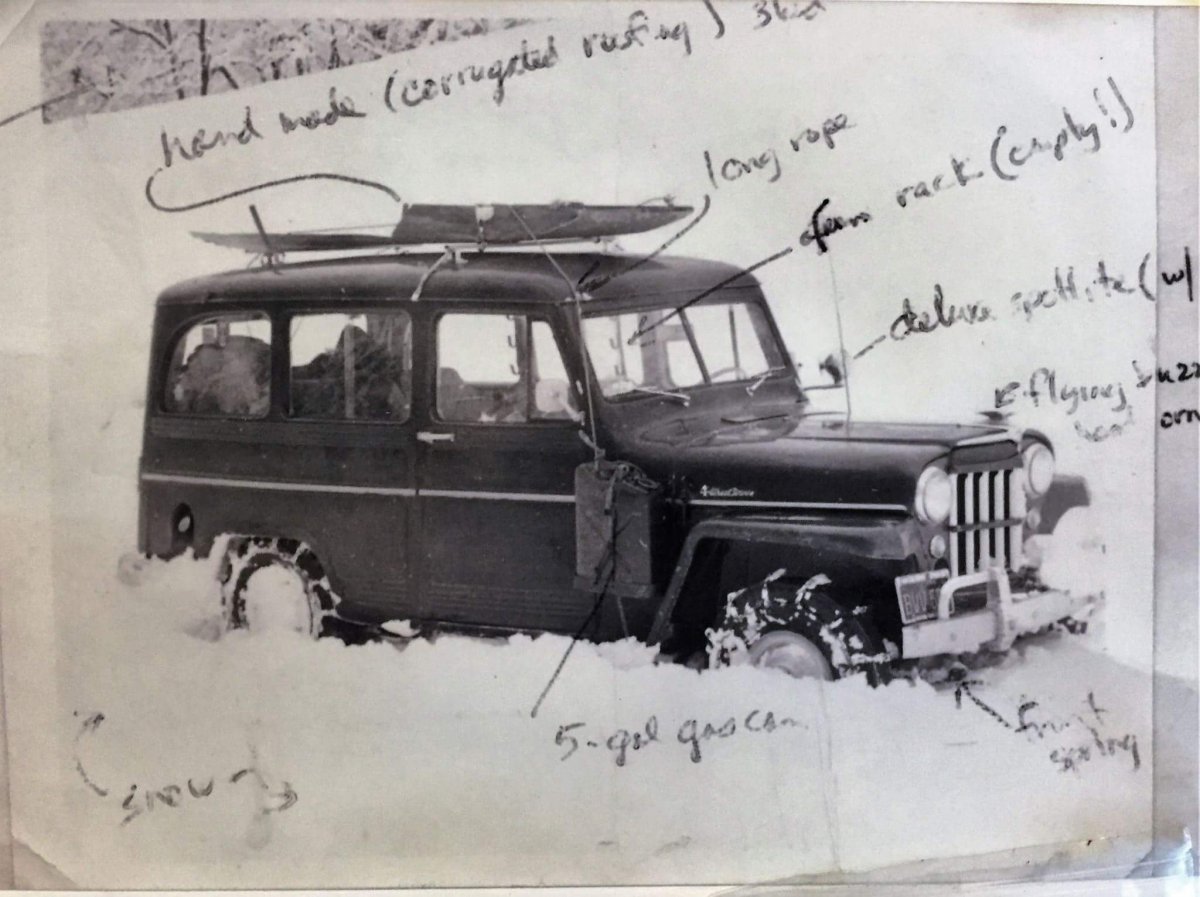 hand made (corrugated roofing)
long rope
gun rack (empty!)
deluxe spotlite (w/
flying buzz
orn
4 Wheel Drive
5-gal gas can
front
spring
snow